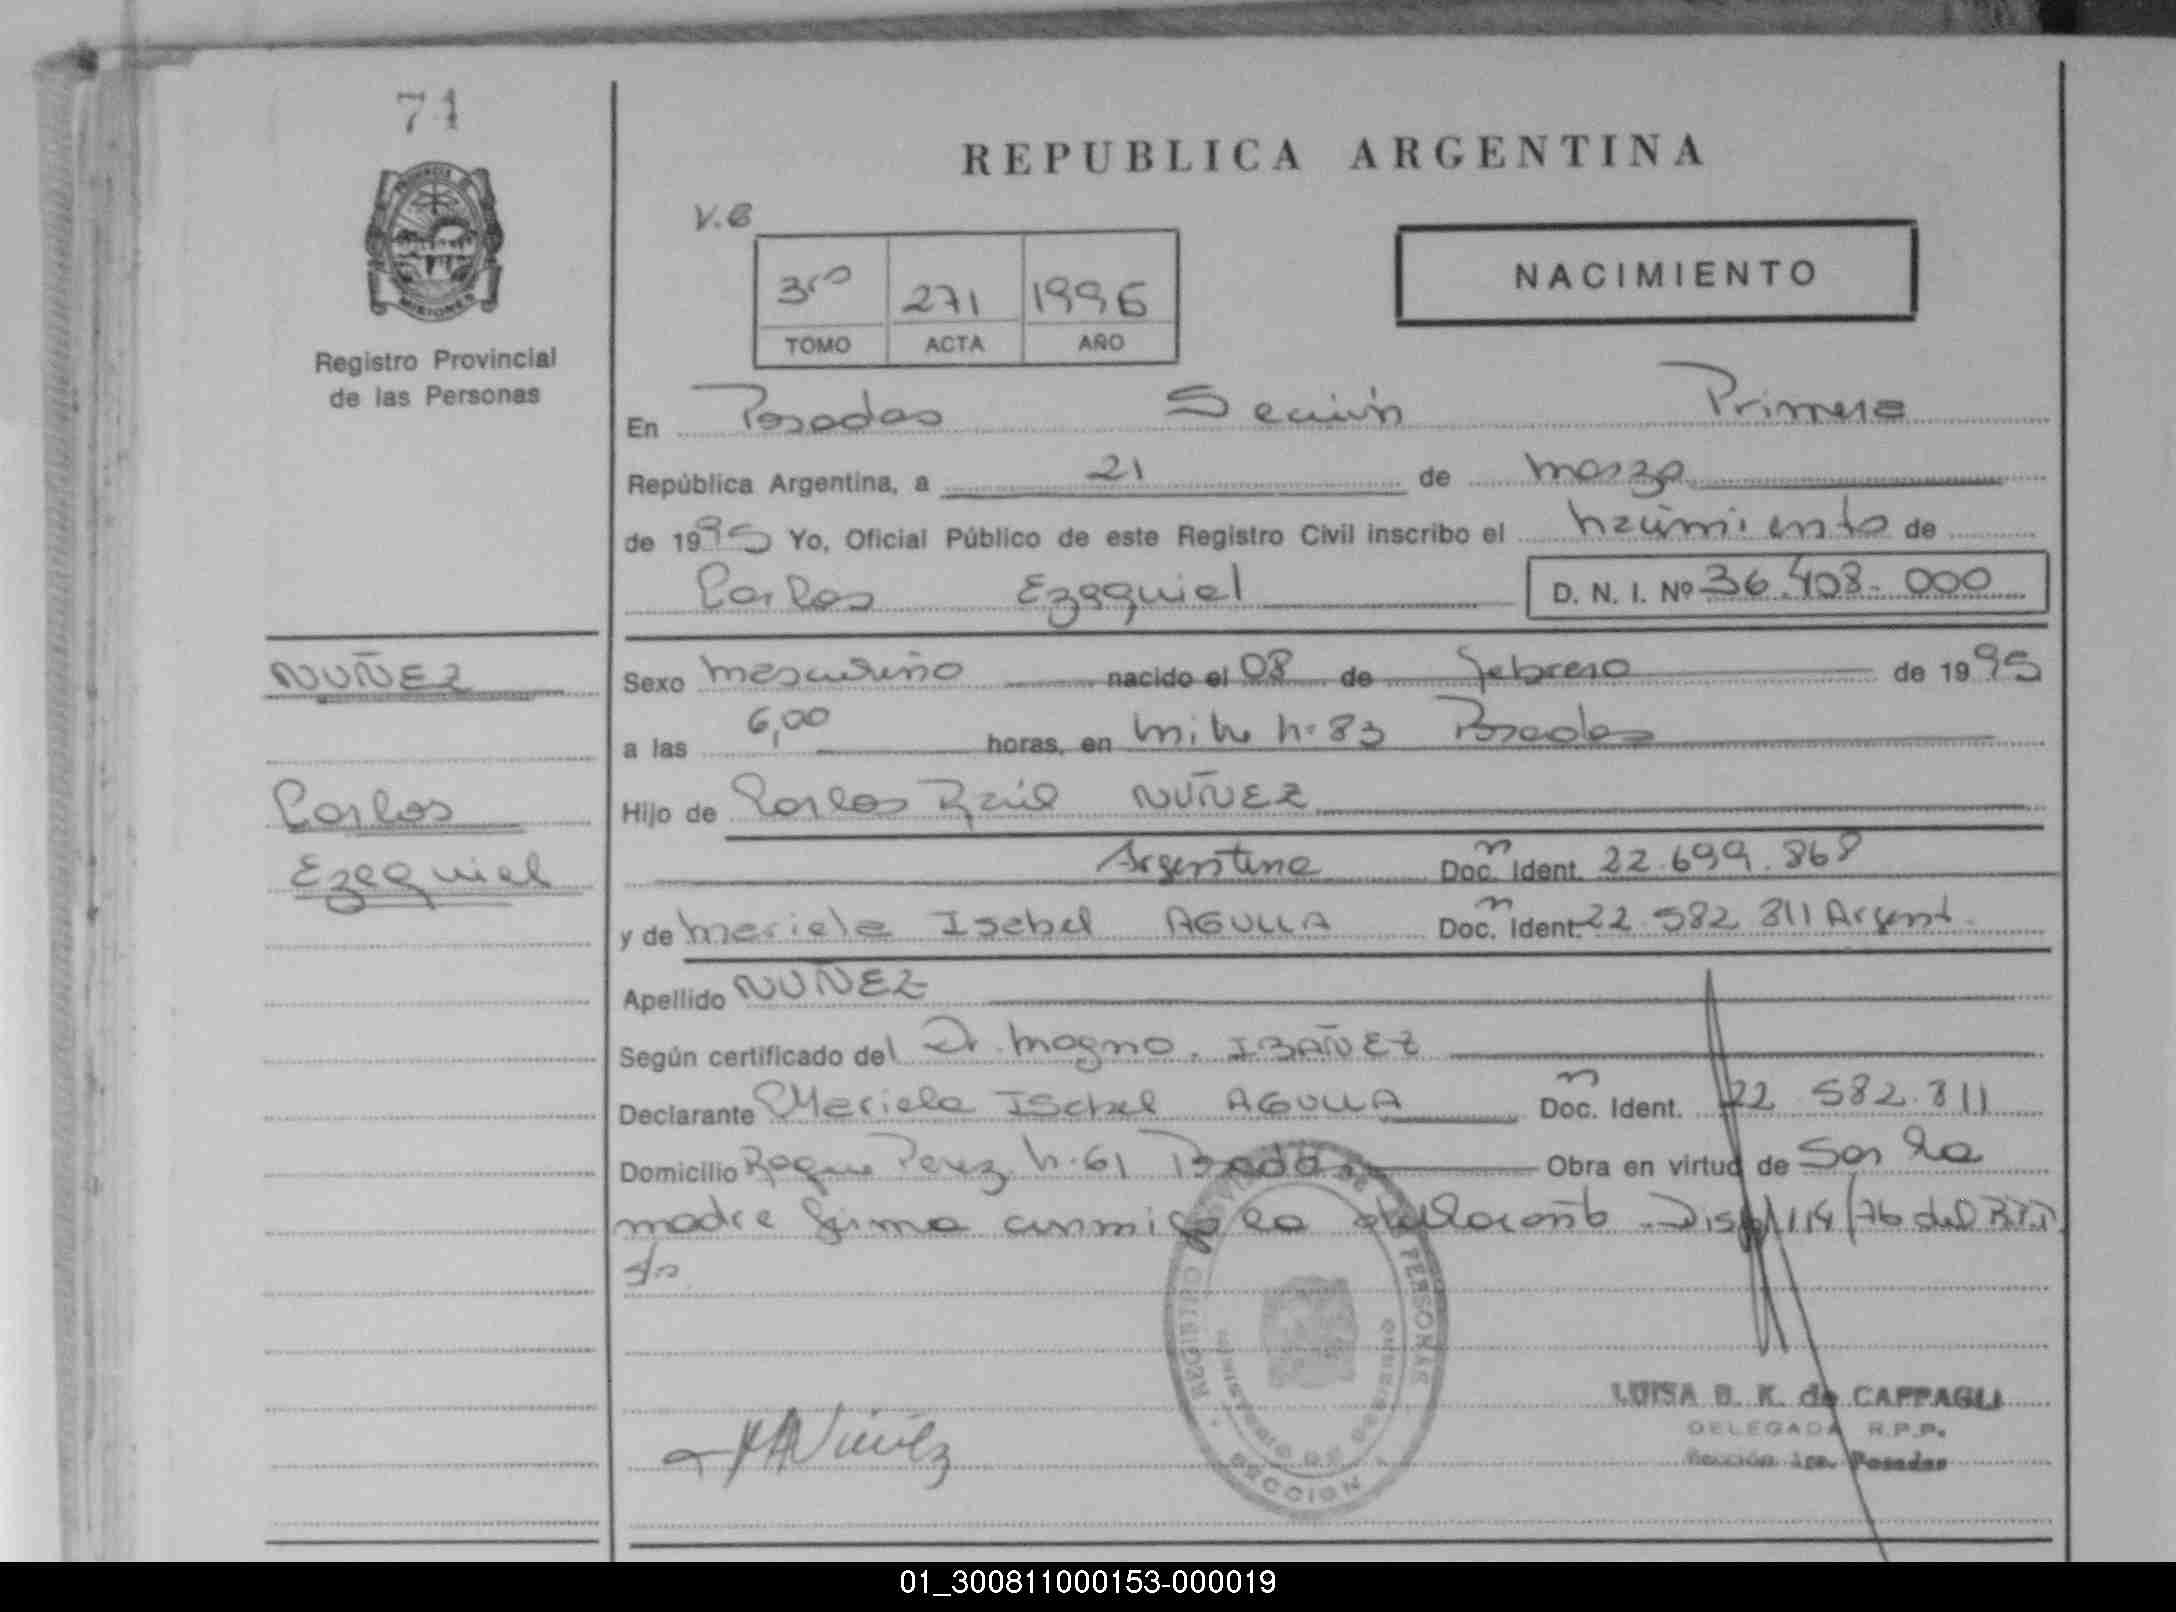 71
REPUBLICA ARGENTINA
V.B
3ro 271 1996
TOMO ACTA AÑO
NACIMIENTO
PROVINCIA DE
MISIONES
Registro Provincial
de las Personas
En Posadas Sección Primera
República Argentina, a 21 de marzo
de 1995 Yo, Oficial Público de este Registro Civil inscribo el nacimiento de
Carlos Ezequiel D. N. I. Nº 36.408.000
NUÑEZ
Carlos
Ezequiel
Sexo masculino nacido el 08 de febrero de 1995
a las 6,00 horas, en Mitre n. 83 Posadas
Hijo de Carlos Raúl NUÑEZ
Argentina Doc. Ident. 22.699.868
y de Mariela Isabel AGULLA Doc. Ident. 22.582.811 Argent.
Apellido NUÑEZ
Según certificado del Dr. Magno. IBAÑEZ
Declarante Mariela Isabel AGULLA Doc. Ident. 22.582.811
Domicilio Roque Perez n. 61 Posadas Obra en virtud de Ser la
madre firma conmigo la declarante Disp. 114/76 del R.P.P.
REGISTRO PROVINCIAL DE LAS PERSONAS
MINISTERIO DE GOBIERNO
SECCION 1
Nuñez
LUISA B. K. de CAPPAGLI
DELEGADA R.P.P.
Sección 1ra. Posadas
01_300811000153-000019